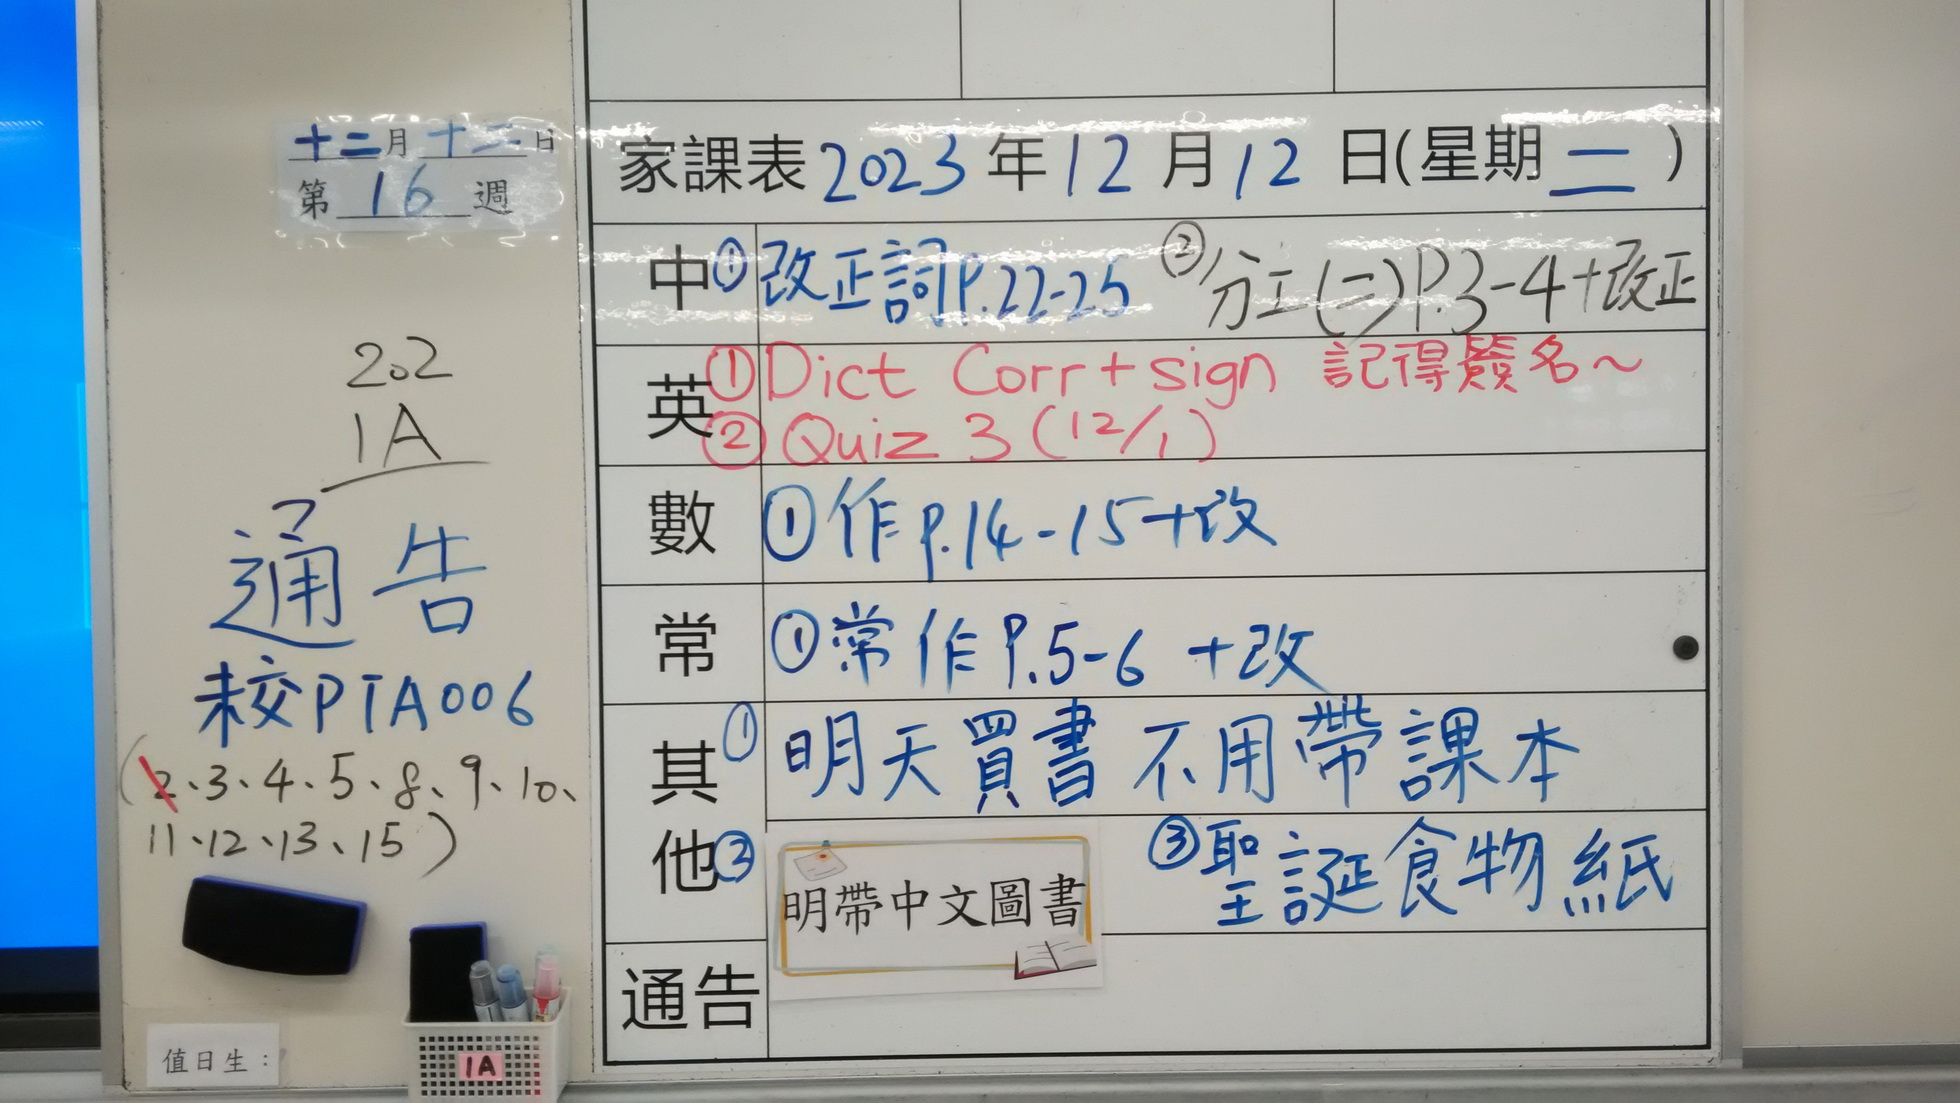 十二月十二日
第16週
202
1A
通告
未交PTA006
(2、3、4、5、8、9、10、
11、12、13、15)
值日生：
1A
家課表2023年12月12日(星期二)
中①改正詞P.22-25 ②分工(二)P.3-4+改正
英①Dict Corr+sign 記得簽名~
②Quiz 3 (12/1)
數①作P.14-15+改
常①常作P.5-6 +改
其他①明天買書不用帶課本
②明帶中文圖書 ③聖誕食物紙
通告